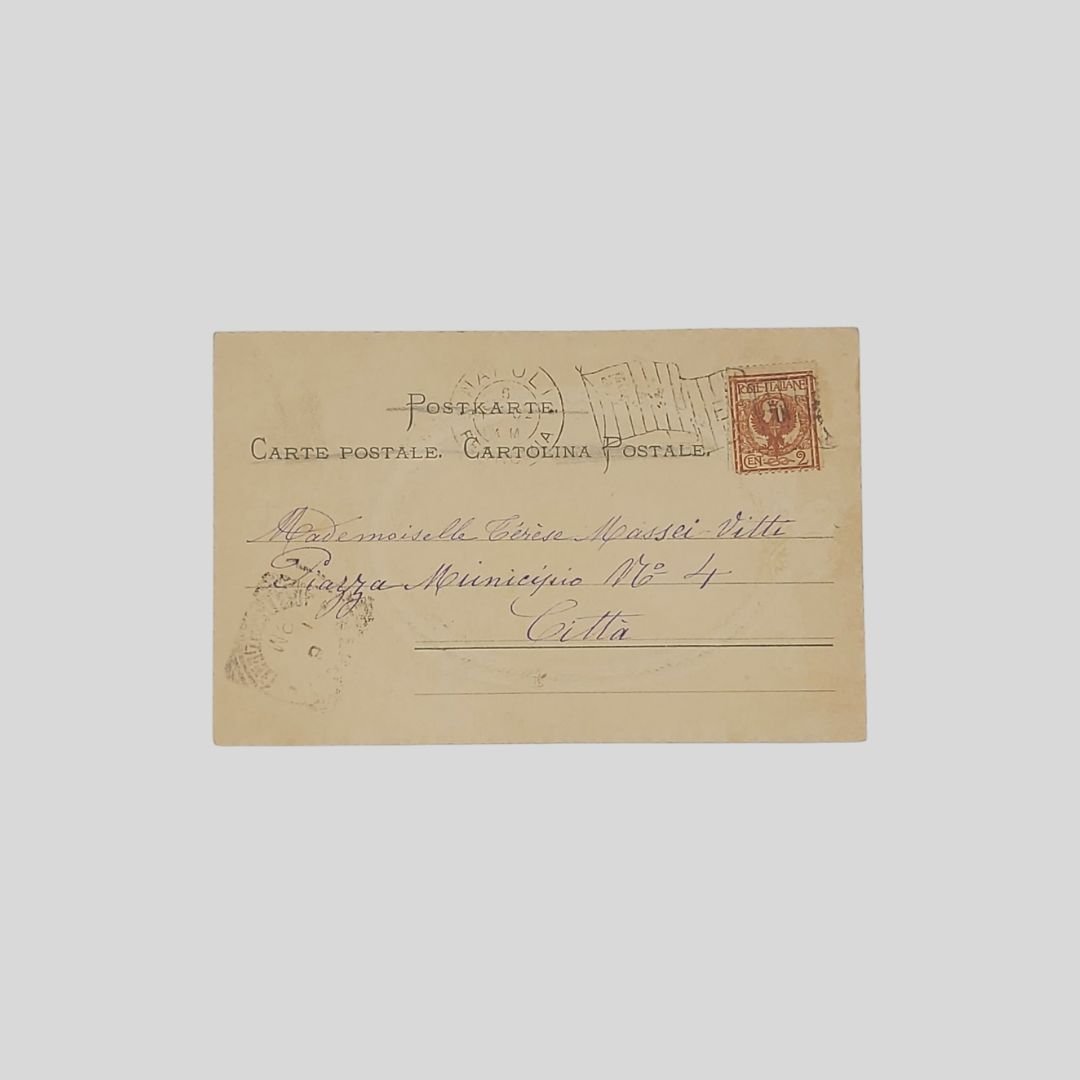 NAPOLI
POSTKARTE.
CARTE POSTALE. CARTOLINA POSTALE.
POSTE ITALIANE
CEN 2
Mademoiselle Térèse Massei-Vitti
Piazza Municipio No 4
Città